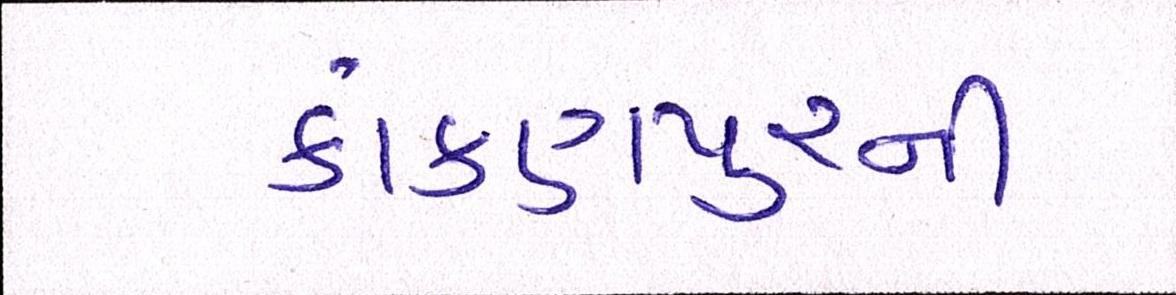 કાંકણપુરની